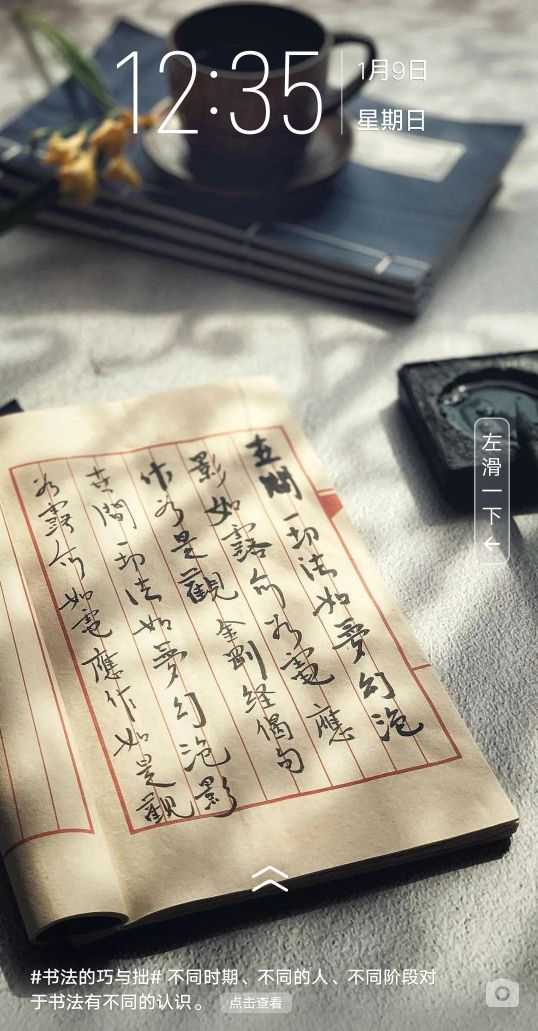 12:35
1月9日
星期日
左滑一下←
世間一切法如夢幻泡
影如露亦如電應
作如是觀 金剛經偈句
世間一切法如夢幻泡影
如露亦如電應作如是觀
#书法的巧与拙# 不同时期、不同的人、不同阶段对
于书法有不同的认识。 点击查看